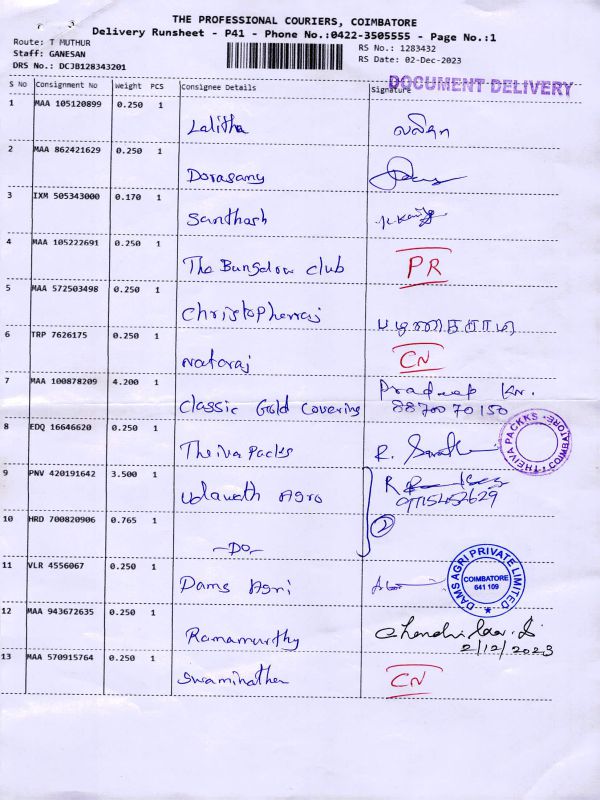 THE PROFESSIONAL COURIERS, COIMBATORE
Delivery Runsheet - P41 - Phone No.:0422-3505555 - Page No.:1
Route: T MUTHUR
RS No.: 1283432
Staff: GANESAN
RS Date: 02-Dec-2023
DRS No.: DCJB128343201
DOCUMENT DELIVERY
S No Consignment No Weight PCS Consignee Details Signature
1 MAA 105120899 0.250 1
Lalitha லலிதா
2 MAA 862421629 0.250 1
Dorasamy
3 IXM 505343000 0.170 1
Santhosh
4 MAA 105222691 0.250 1
The Bungalow club PR
5 MAA 572503498 0.250 1
Christopherraj
6 TRP 7626175 0.250 1
Nataraj CN
7 MAA 100878209 4.200 1
Pradeep Kr.
Classic Gold Covering 88700 70150
8 EDQ 16646620 0.250 1
Theiva Packs R.
THEIVA PACKKS COIMBATORE
9 PNV 420191642 3.500 1
Agro R
10 HRD 700820906 0.765 1
-DO- 2
11 VLR 4556067 0.250 1
Dams Agri
DAMS AGRI PRIVATE LIMITED
COIMBATORE
641 109
12 MAA 943672635 0.250 1
Ramamurthy
2/12/2023
13 MAA 570915764 0.250 1
Swaminathan CN